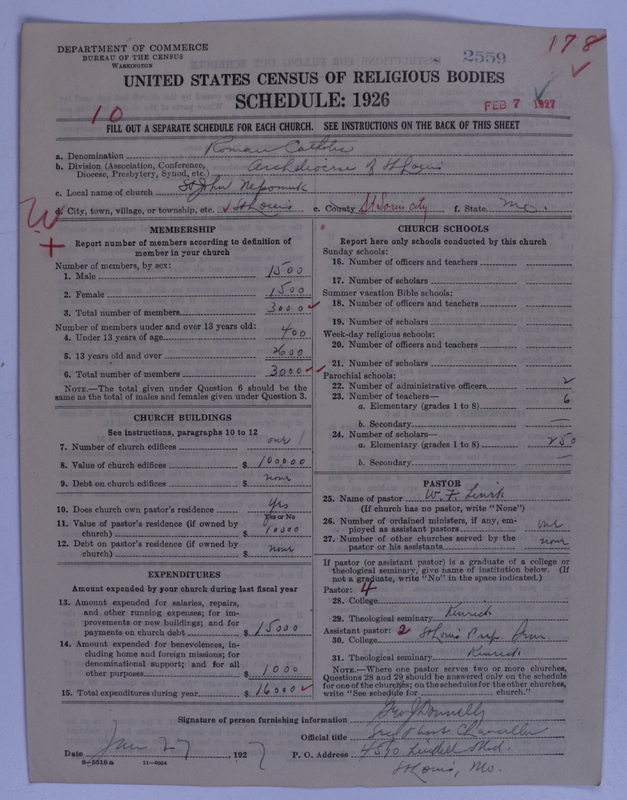 DEPARTMENT OF COMMERCE
BUREAU OF THE CENSUS
WASHINGTON
2559
178
UNITED STATES CENSUS OF RELIGIOUS BODIES
SCHEDULE: 1926
FEB 7 1927
10
FILL OUT A SEPARATE SCHEDULE FOR EACH CHURCH. SEE INSTRUCTIONS ON THE BACK OF THIS SHEET
a. Denomination Roman Catholic
b. Division (Association, Conference, Diocese, Presbytery, Synod, etc.) Archdiocese of St Louis
c. Local name of church St John Nepomuk
d. City, town, village, or township, etc. St Louis e. County St Louis city f. State Mo.
MEMBERSHIP
Report number of members according to definition of
member in your church
Number of members, by sex:
1. Male 1500
2. Female 1500
3. Total number of members 3000
Number of members under and over 13 years old:
4. Under 13 years of age 400
5. 13 years old and over 2600
6. Total number of members 3000
NOTE.—The total given under Question 6 should be
same as the total of males and females given under Question 3.
CHURCH BUILDINGS
See instructions, paragraphs 10 to 12
7. Number of church edifices one 1
8. Value of church edifices $ 100000
9. Debt on church edifices $ none
10. Does church own pastor's residence Yes
Yes or No
11. Value of pastor's residence (if owned by
church) $ 10000
12. Debt on pastor's residence (if owned by
church) $ none
EXPENDITURES
Amount expended by your church during last fiscal year
13. Amount expended for salaries, repairs,
and other running expenses; for im-
provements or new buildings; and for
payments on church debt $ 15000
14. Amount expended for benevolences, in-
cluding home and foreign missions; for
denominational support; and for all
other purposes $ 1000
15. Total expenditures during year $ 16000
CHURCH SCHOOLS
Report here only schools conducted by this church
Sunday schools:
16. Number of officers and teachers
17. Number of scholars
Summer vacation Bible schools:
18. Number of officers and teachers
19. Number of scholars
Week-day religious schools:
20. Number of officers and teachers
21. Number of scholars
Parochial schools:
22. Number of administrative officers 2
23. Number of teachers—
a. Elementary (grades 1 to 8) 6
b. Secondary —
24. Number of scholars—
a. Elementary (grades 1 to 8) 250
b. Secondary —
PASTOR
25. Name of pastor W. F.
(If church has no pastor, write "None")
26. Number of ordained ministers, if any, em-
ployed as assistant pastors one
27. Number of other churches served by the
pastor or his assistants none
If pastor (or assistant pastor) is a graduate of a college or
theological seminary, give name of institution below. (If
not a graduate, write "No" in the space indicated.)
Pastor: 4
28. College
29. Theological seminary Kenrick
Assistant pastor: 2
30. College St Louis Prep. Sem.
31. Theological seminary Kenrick
NOTE.—Where one pastor serves two or more churches,
Questions 28 and 29 should be answered only on the schedule
for one of the churches; on the schedules for the other churches,
write "See schedule for church."
Signature of person furnishing information Geo J Donnelly
Official title Chancellor
Date Jan 27 1927 P. O. Address 4510 Lindell Blvd.
St Louis, Mo.
8—5518a 11—9054